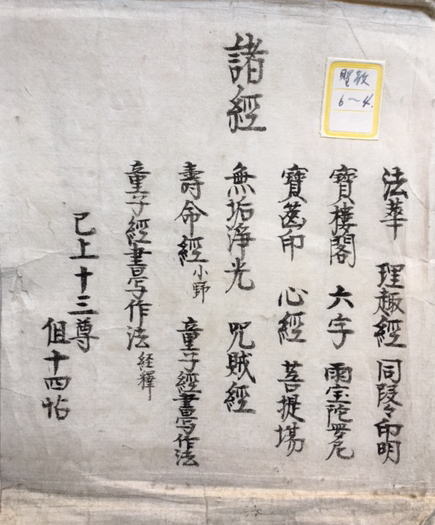 諸經
聖教
6〜4
法華 理趣經 同段々印明
寳樓閣 六字 雨宝陀羅尼
寳篋印 心經 菩提場
無垢淨光 咒賊經
壽命經 小野 童子經書写作法
童子經書写作法 経釋
已上十三尊
但十四帖